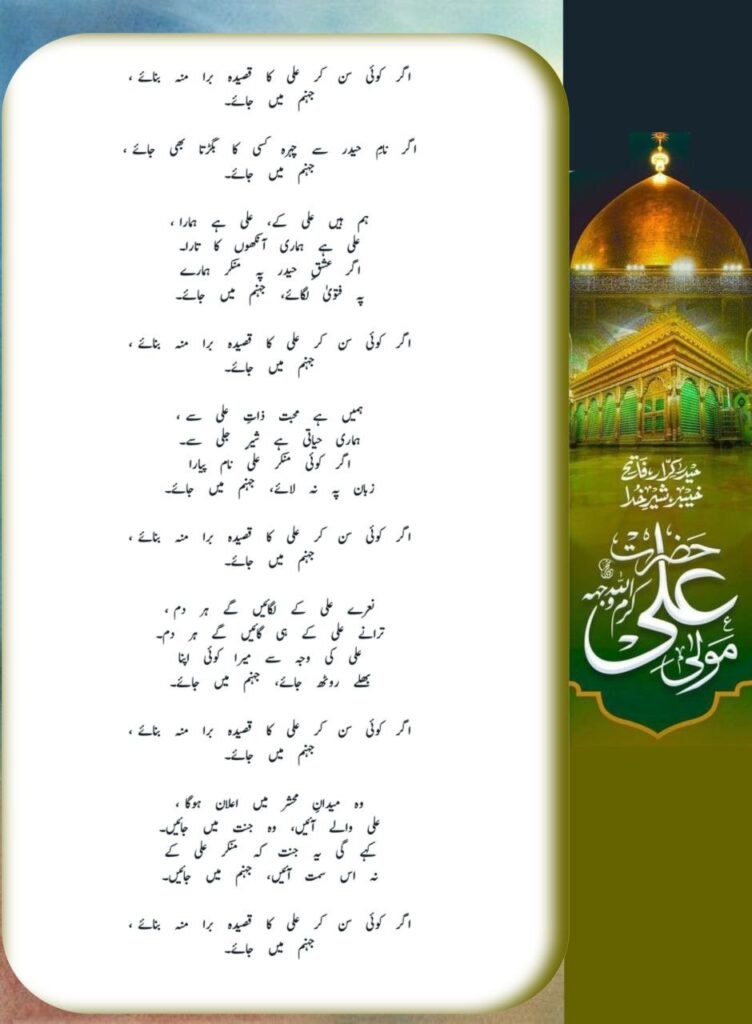 اگر کوئی سن کر علی کا قصیدہ برا منہ بنائے ،
جہنم میں جائے۔
اگر نامِ حیدر سے چہرہ کسی کا بگڑتا بھی جائے ،
جہنم میں جائے۔
ہم ہیں علی کے، علی ہے ہمارا ،
علی ہے ہماری آنکھوں کا تارا۔
اگر عشقِ حیدر پہ منکر ہمارے
پہ فتویٰ لگائے، جہنم میں جائے۔
اگر کوئی سن کر علی کا قصیدہ برا منہ بنائے ،
جہنم میں جائے۔
ہمیں ہے محبت ذاتِ علی سے ،
ہماری حیاتی ہے شیرِ جلی سے۔
اگر کوئی منکر علی نام پیارا
زبان پہ نہ لائے، جہنم میں جائے۔
اگر کوئی سن کر علی کا قصیدہ برا منہ بنائے ،
جہنم میں جائے۔
نعرے علی کے لگائیں گے ہر دم ،
ترانے علی کے ہی گائیں گے ہر دم۔
علی کی وجہ سے میرا کوئی اپنا
بھلے روٹھ جائے، جہنم میں جائے۔
اگر کوئی سن کر علی کا قصیدہ برا منہ بنائے ،
جہنم میں جائے۔
وہ میدانِ محشر میں اعلان ہوگا ،
علی والے آئیں، وہ جنت میں جائیں۔
کہے گی یہ جنت کہ منکر علی کے
نہ اس سمت آئیں، جہنم میں جائیں۔
اگر کوئی سن کر علی کا قصیدہ برا منہ بنائے ،
جہنم میں جائے۔
حیدرِ کرّار، فاتحِ
خیبر، شیرِ خدا
حضرت
علی
کرم اللہ وجہہ
مولیٰ